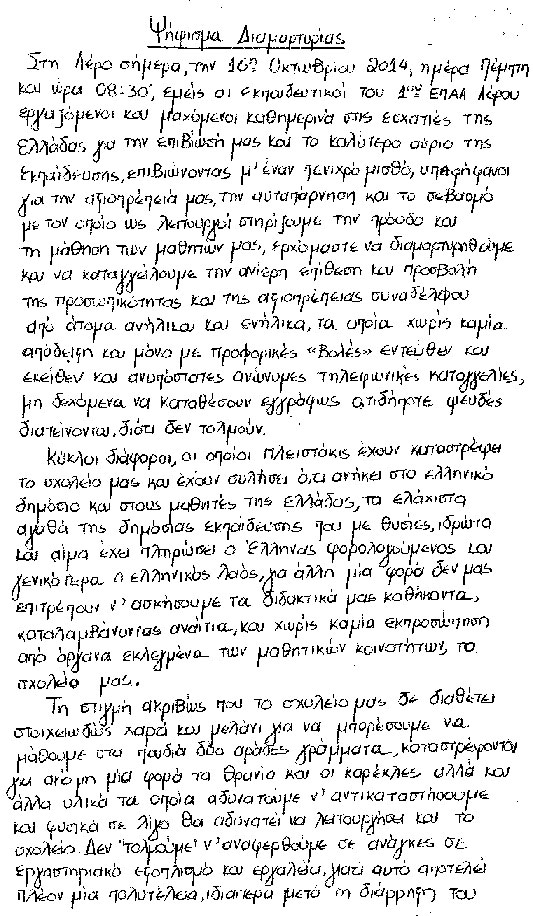 Ψήφισμα Διαμαρτυρίας
Στη Λέρο σήμερα, την 16η Οκτωβρίου 2014, ημέρα Πέμπτη
και ώρα 08:30', εμείς οι εκπαιδευτικοί του 1ου ΕΠΑΛ Λέρου
εργαζόμενοι και μαχόμενοι καθημερινά στις εσχατιές της
Ελλάδας για την επιβίωσή μας και το καλύτερο αύριο της
εκπαίδευσης, επιβιώνοντας μ' έναν πενιχρό μισθό, υπερήφανοι
για την αξιοπρέπειά μας, την αυταπάρνηση και το σεβασμό
με τον οποίο ως λειτουργοί στηρίζουμε την πρόοδο και
τη μάθηση των μαθητών μας, ερχόμαστε να διαμαρτυρηθούμε
και να καταγγείλουμε την ανίερη επίθεση και προσβολή
της προσωπικότητας και της αξιοπρέπειας συναδέλφου
από άτομα ανήλικα και ενήλικα, τα οποία χωρίς καμία
απόδειξη και μόνο με προφορικές «βολές» εντεύθεν και
εκείθεν και ανυπόστατες ανώνυμες τηλεφωνικές καταγγελίες,
μη δεχόμενα να καταθέσουν εγγράφως οτιδήποτε ψευδές
διατείνονται, διότι δεν τολμούν.
Κύκλοι διάφοροι, οι οποίοι πλειστάκις έχουν καταστρέψει
το σχολείο μας και έχουν συλήσει ό,τι ανήκει στο ελληνικό
δημόσιο και στους μαθητές της Ελλάδας, τα ελάχιστα
αγαθά της δημόσιας εκπαίδευσης που με θυσίες, ιδρώτα
και αίμα έχει πληρώσει ο Έλληνας φορολογούμενος και
γενικότερα ο ελληνικός λαός, για άλλη μία φορά δεν μας
επιτρέπουν ν' ασκήσουμε τα διδακτικά μας καθήκοντα,
καταλαμβάνοντας αναίτια, και χωρίς καμία εκπροσώπηση
από όργανα εκλεγμένα των μαθητικών κοινοτήτων, το
σχολείο μας.
Τη στιγμή ακριβώς που το σχολείο μας δε διαθέτει
στοιχειωδώς χαρτί και μελάνι για να μπορέσουμε να
μάθουμε στα παιδιά δύο αράδες γράμματα, καταστρέφονται
για ακόμη μία φορά τα θρανία και οι καρέκλες αλλά και
άλλα υλικά τα οποία αδυνατούμε ν' αντικαταστήσουμε
και φυσικά σε λίγο θα αδυνατεί να λειτουργήσει και το
σχολείο. Δεν 'τολμούμε' ν' αναφερθούμε σε ανάγκες σε
εργαστηριακό εξοπλισμό και εργαλεία, γιατί αυτό αποτελεί
πλέον μία πολυτέλεια, ιδιαίτερα μετά τη διάρρηξη του